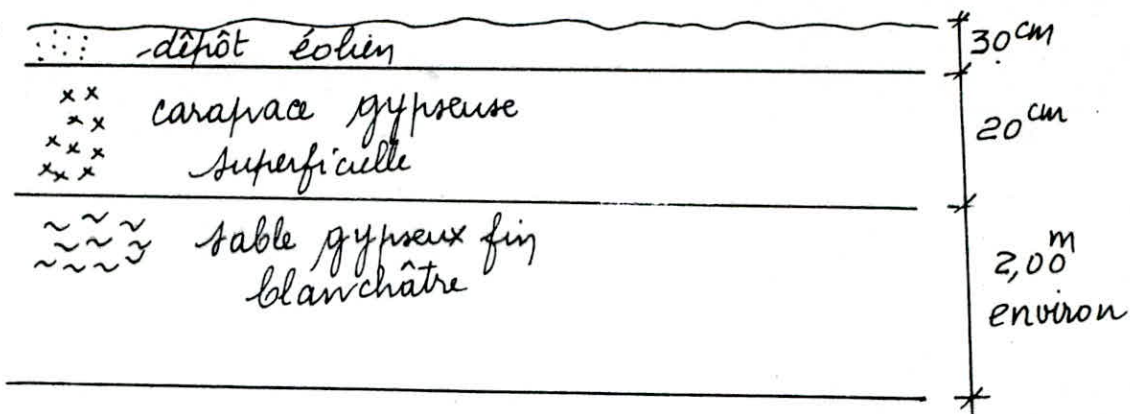 dêpôt éolien
30 cm
carapace gypseuse
superficielle
20 cm
sable gypseux fin
blanchâtre
2,00 m
environ